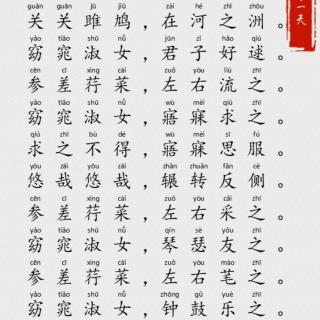 guān guān jū jiū zài hé zhī zhōu
关关雎鸠，在河之洲。
yǎo tiǎo shū nǚ jūn zǐ hǎo qiú
窈窕淑女，君子好逑。
cēn cī xìng cài zuǒ yòu liú zhī
参差荇菜，左右流之。
yǎo tiǎo shū nǚ wù mèi qiú zhī
窈窕淑女，寤寐求之。
qiú zhī bù dé wù mèi sī fú
求之不得，寤寐思服。
yōu zāi yōu zāi zhǎn zhuǎn fǎn cè
悠哉悠哉，辗转反侧。
cēn cī xìng cài zuǒ yòu cǎi zhī
参差荇菜，左右采之。
yǎo tiǎo shū nǚ qín sè yǒu zhī
窈窕淑女，琴瑟友之。
cēn cī xìng cài zuǒ yòu mào zhī
参差荇菜，左右芼之。
yǎo tiǎo shū nǚ zhōng gǔ yuè zhī
窈窕淑女，钟鼓乐之。
一天